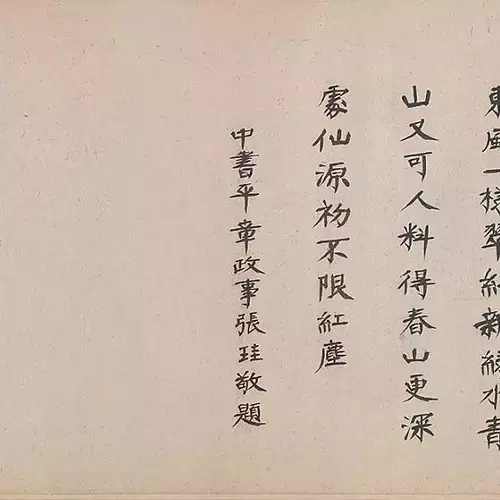 東風一樣翠紅新綠水青
山又可人料得春山更深
處仙源初不限紅塵
中書平章政事張珪敬題